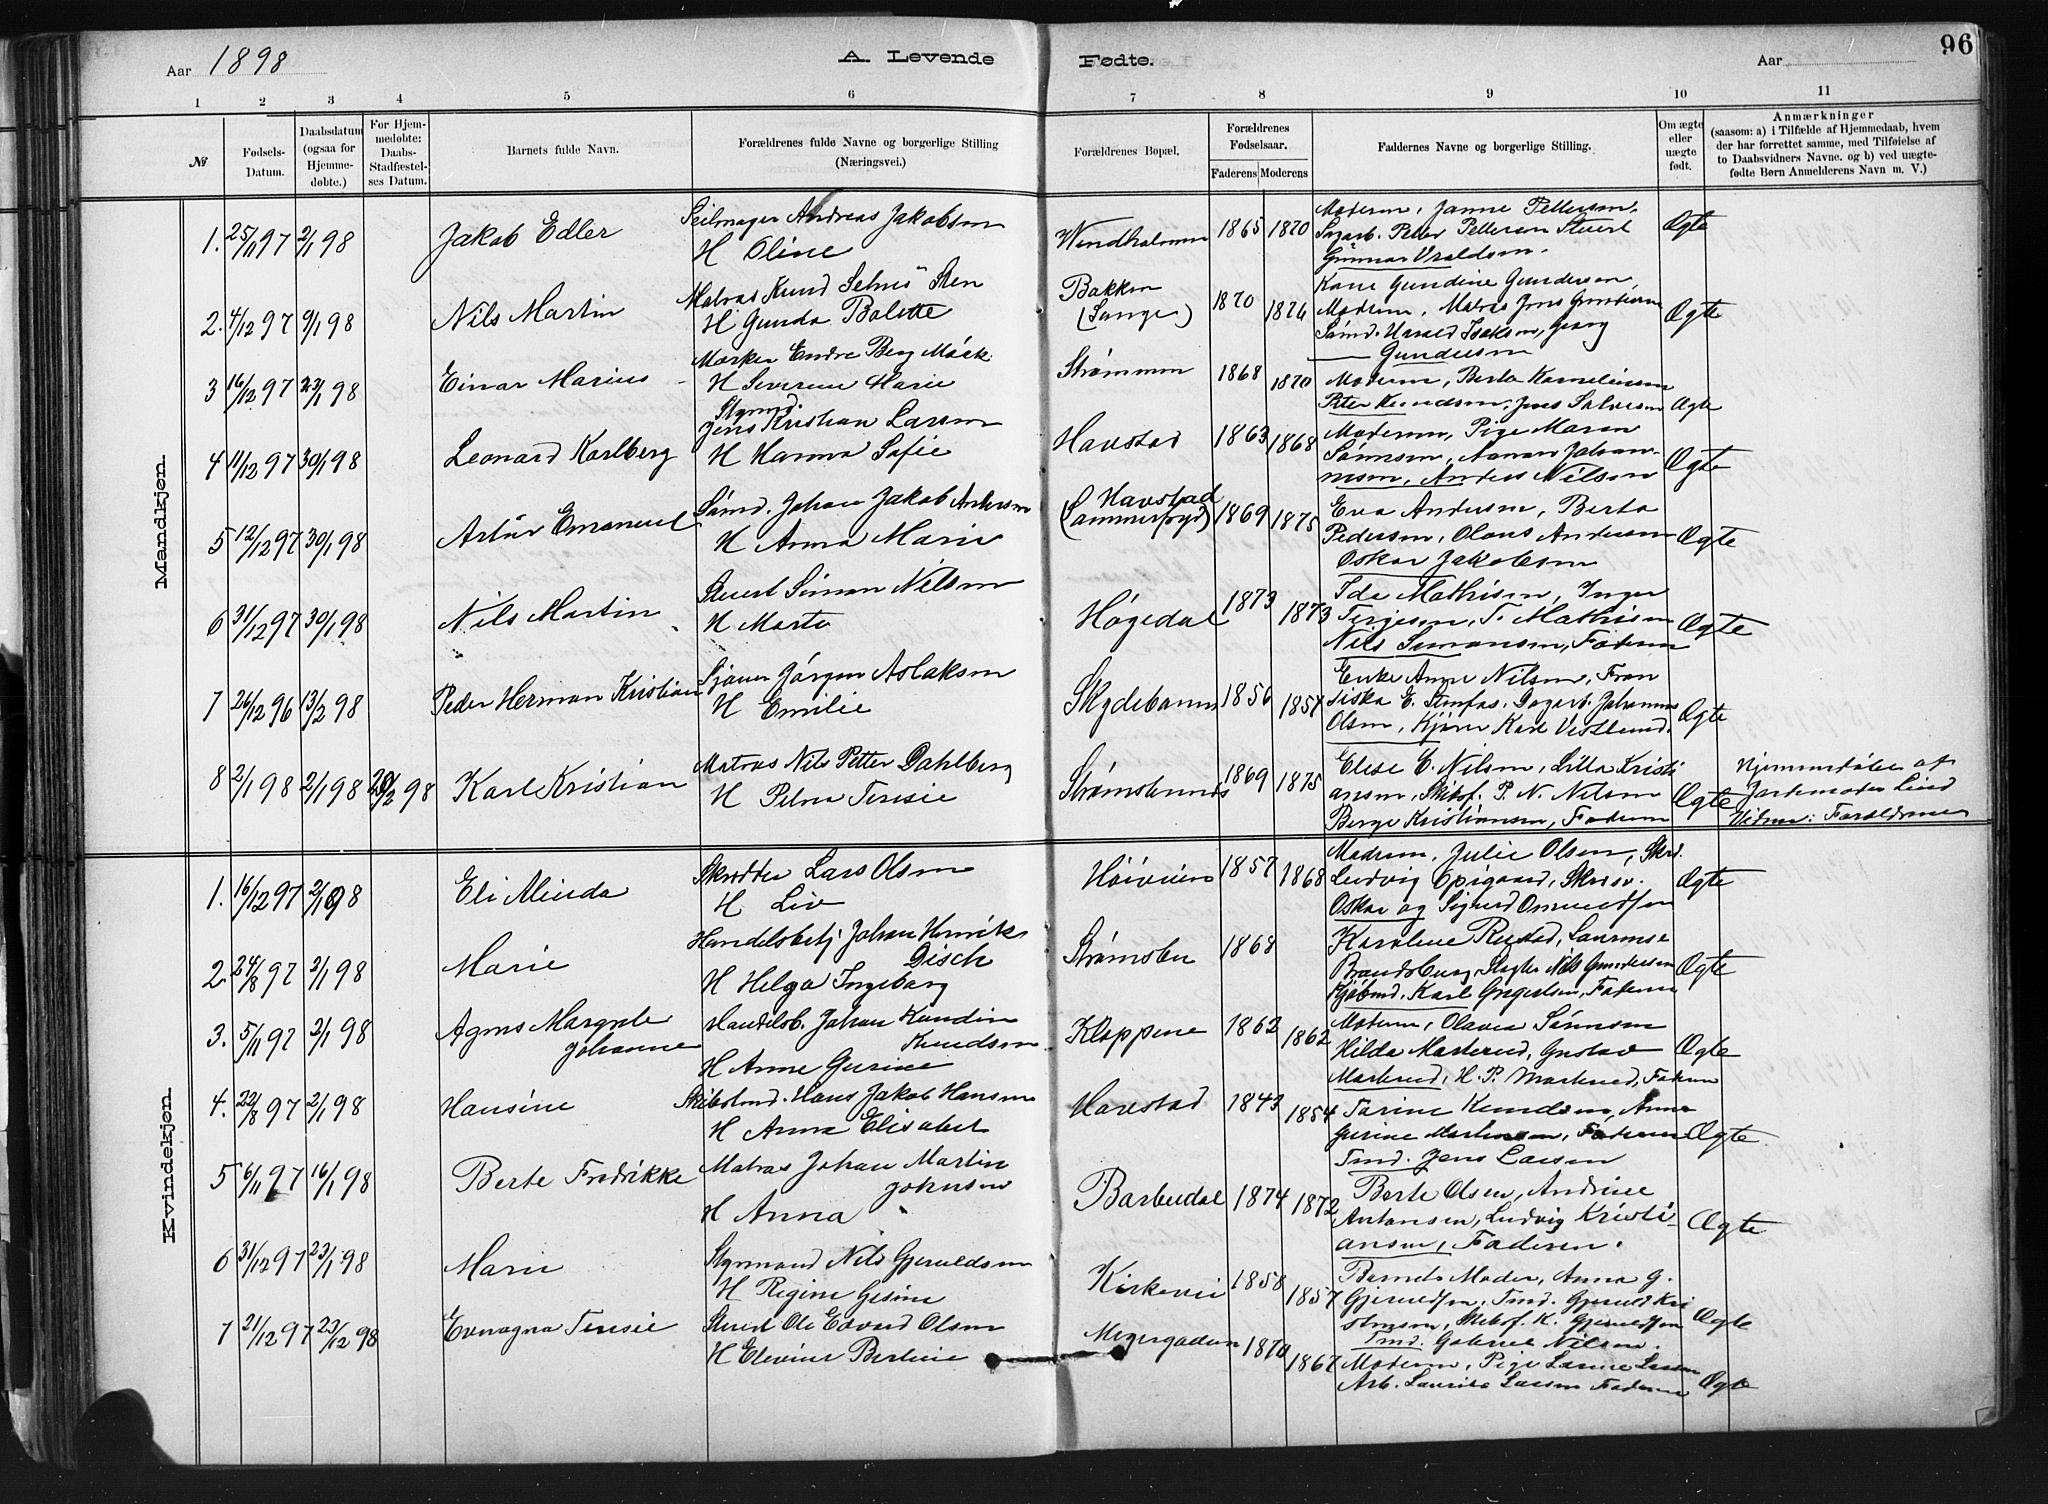 Aar 1898
A. Levende Fødte.
Aar
96
1 2 3 4 5 6 7 8 9 10 11
№
Fødsels-Datum.
Daabsdatum (ogsaa for Hjemme-døbte.)
For Hjem-medøbte: Daabs-Stadfæstel-ses Datum.
Barnets fulde Navn.
Forældrenes fulde Navne og borgerlige Stilling (Næringsvei.)
Forældrenes Bopæl.
Forældrenes Fødselsaar.
Faderens Moderens
Faddernes Navne og borgerlige Stilling.
Om ægte eller uægte født.
Anmærkninger
(saasom: a) i Tilfælde af Hjemmedaab, hvem
der har forrettet samme, med Tilføielse af
to Daabsvidners Navne. og b) ved uægte-
fødte Børn Anmelderens Navn m. V.)
Mandkjøn.
1. 25/11 97 2/1 98 Jakob Edler
Seilmager Andreas Jakobsen
H Oline
1865 1870
Moderen, Janne Pettersen,
Peter Pettersen Stuert
Gunnar
Ægte
2. 4/12 97 9/1 98 Nils Martin
Matros Knud Selnes Sten
H Gunda Bolette
Bakken (Songe) 1870 1874
Kone Gundine Gundersen,
Moderen, Matros Jens
Sømd. Harald Isaksen, Georg
Gundersen
Ægte
3 16/12 97 23/1 98 Einar Marius
Endre Berg
H Severine Marie
Strømmen 1868 1870
Moderen, Berta Korneliussen
Peter Knudsen, Jens Salvesen
Ægte
4 11/12 97 30/1 98 Leonard Karlberg
Styrmd. Jens Kristian Larsen
H Hanna Sofie
Havstad 1863 1868
Moderen, Pige Maren
Sørensen, Aanon Johan-
nesen, Anders Nilsen
Ægte
5 12/12 97 30/1 98 Artur Emanuel
Sømd. Johan Jakob Andersen
H Anna Marie
Havstad 1869 1875
Eva Andersen, Berta
Pedersen, Olaus Andersen
Oskar Jakobsen
Ægte
6 31/12 97 30/1 98 Nils Martin
Stuert Simon Nilsen
H Marta
Høgedal 1873 1873
Ida Mathisen, Inger
Terjesen, T. Mathisen
Nils Simonsen, Faderen
Ægte
7 26/12 96 13/2 98 Peder Herman Kristian
Sjauer Jørgen Aslaksen
H Emilie
Skydebanen 1856 1857
Enke Anne Nilsen, Fran
siska E. Dagarb. Johannes
Olsen, Kjører Karl Vestlund.
Ægte
8 2/1 98 2/1 98 20/2 98 Karl Kristian
Matros Nils Petter Dahlberg
H Petra Teresie
1869 1875
Elise E. Nilsen, Lilla Kristi
ansen, Skibsf. P. N. Nilsen
Berge Kristiansen, Faderen
Ægte
Hjemmedøbt af
Jordemoder Lind
Vidner: Forældrene
Kvindekjøn.
1. 16/12 97 2/1 98 Eli Alinda
Skrædder Lars Olsen
H. Liv
1857 1868
Moderen, Julie Olsen, Skrd.
Ludvig
Oskar og Sigurd Omundsen
Ægte
2. 24/8 97 2/1 98 Marie
Handelsbetj Johan Henrik
Disch
H Helga Ingeborg
Strømsbu 1868
Karoline
Brandsberg, Slagter Nils Gundersen
Kjøbmd. Karl Faderen
Ægte
3. 5/11 97 2/1 98 Agnes Margrete
Johanne
Handelsb. Johan
Knudsen
H Anne Gurine
Kloppene 1862 1862
Moderen, Olava Sørensen
Hilda Marterud, Gustav
Marterud, H. P. Marterud, Faderen
Ægte
4. 22/8 97 2/1 98 Hansine
Hans Jakob Hansen
H Anna Elisabet
Havstad 1843 1854
Tarine Knudsen, Anne
Gurine Faderen
Tmd. Jens Larsen
Ægte
5 6/11 97 16/1 98 Berte Fredrikke
Matros Johan Martin
Johnsen
H Anna
Barbudal 1874 1872
Berte Olsen, Andrine
Antonsen, Ludvig Kristi-
ansen, Faderen.
Ægte
6 31/12 97 23/1 98 Marie
Styrmand Nils Gjeruldsen
H Regine Gesine
Kirkevei 1858 1857
Barnets Moder, Anna G.
Gjeruldsen, Tmd. Gjeruld Kri
stensen, Skibsf. K. Gjeruldsen
Tmd. Gabriel Nilsen.
Ægte
7 21/12 97 23/12 98 Teresie
Stuert Ole Edvard Olsen
H
1870 1867
Moderen, Pige Larsen
Arb. Laurits Larsen Faderen
Ægte